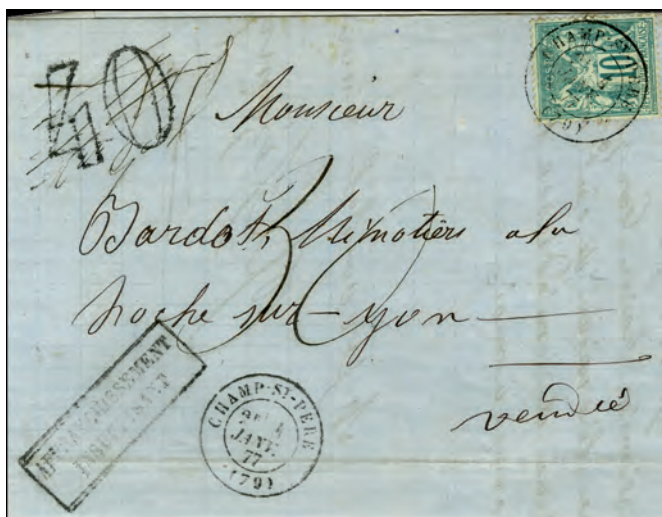 40
CHAMP-ST-PERE
(79)
10
Monsieur
Bardot, Minotiers a la
Roche sur-Yon
30
vendée
AFFRANCHISSEMENT
INSUFFISANT
CHAMP-ST-PERE
2E 4
JANV.
77
(79)